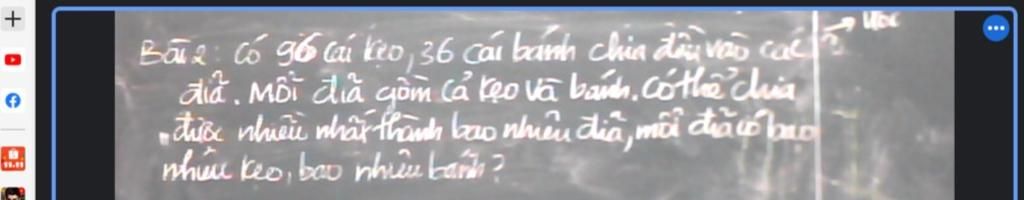 → Ước
Bài 2: Có 96 cái kẹo, 36 cái bánh chia đều vào các
đĩa. Mỗi đĩa gồm cả kẹo và bánh. Có thể chia
được nhiều nhất thành bao nhiêu đĩa, mỗi đĩa có bao
nhiêu kẹo, bao nhiêu bánh?